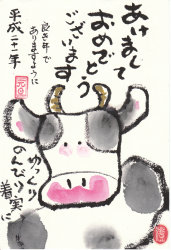 あけまして
おめでとう
ございます
良き年で
ありますように
平成二十一年
元旦
ゆっくり
のんびり
着実に